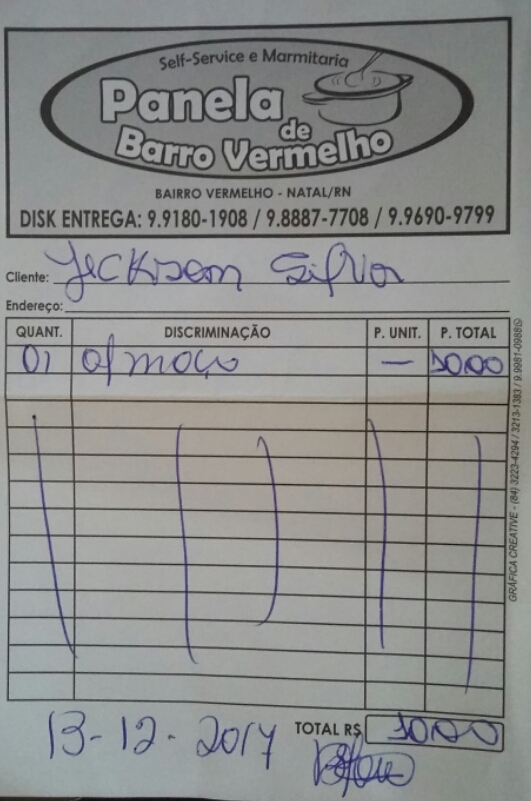 Self-Service e Marmitaria
Panela
de
Barro Vermelho
BAIRRO VERMELHO - NATAL/RN
DISK ENTREGA: 9.9180-1908 / 9.8887-7708 / 9.9690-9799
Cliente: Jeckisom Silva
Endereço:
QUANT. DISCRIMINAÇÃO P. UNIT. P. TOTAL
01 almoço — 10,00
GRÁFICA CREATIVE - (84) 3223-4294 / 3213-1383 / 9.9981-0988
TOTAL R$ 10,00
13-12-2017